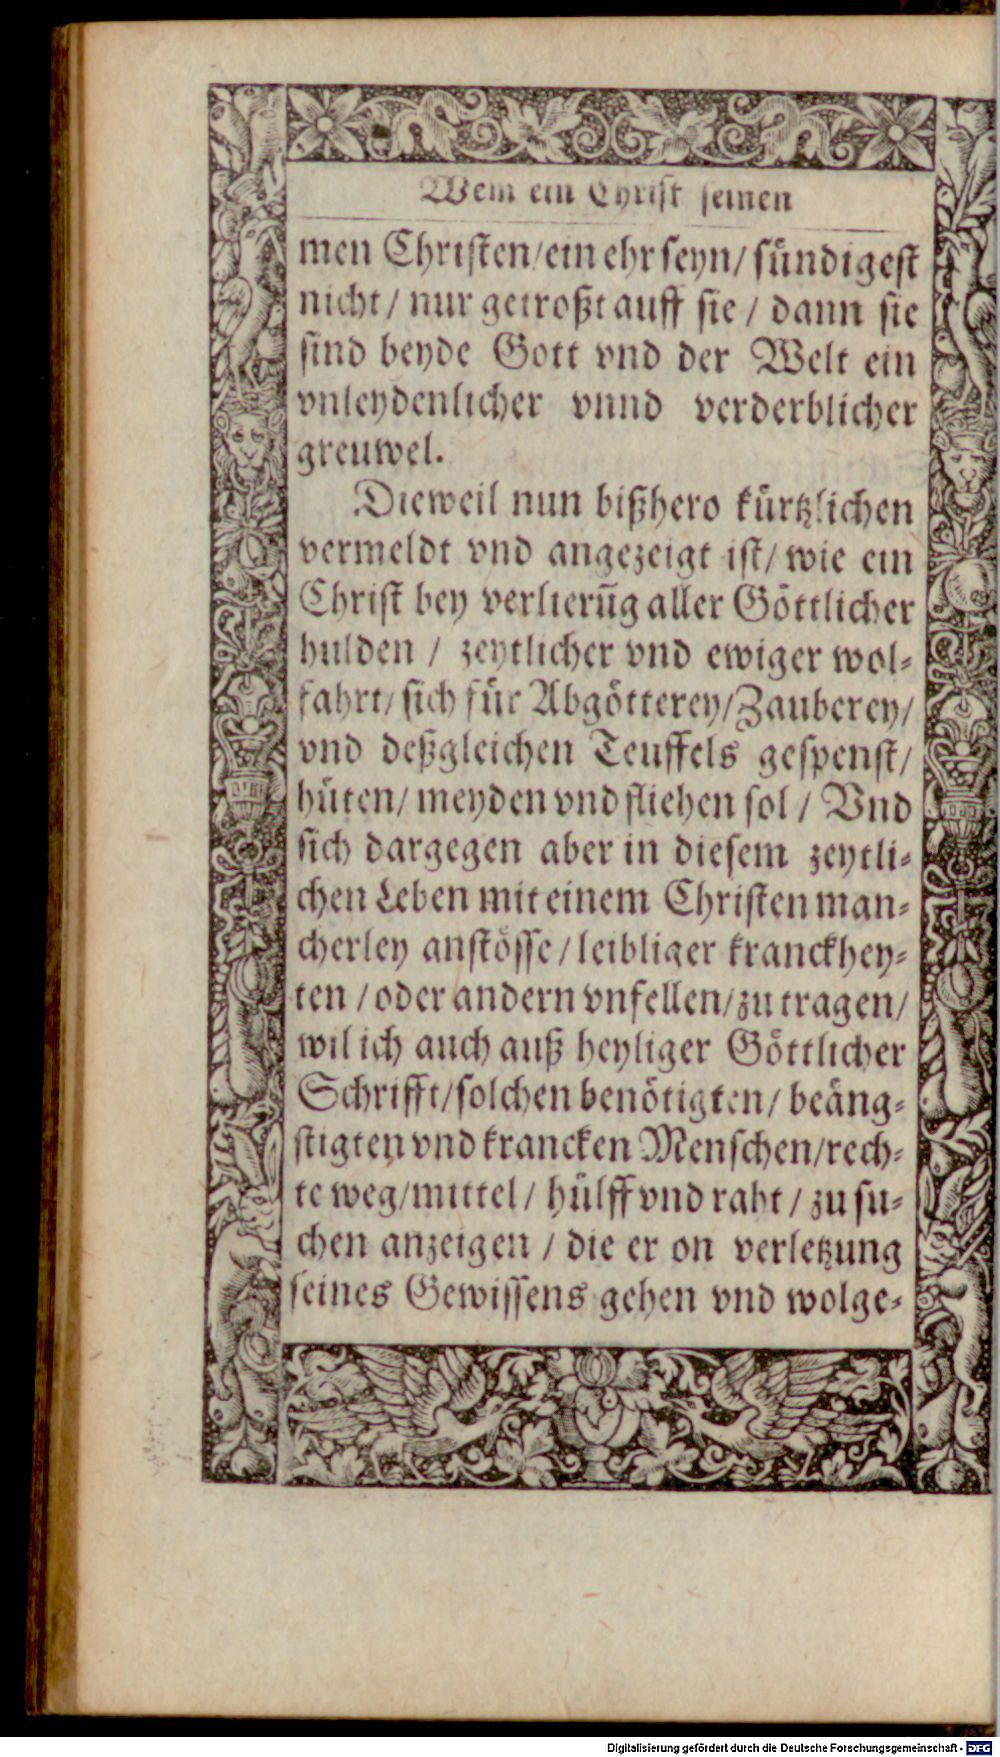 Wem ein Christ seinen
men Christen/ein ehr seyn/ sündigest
nicht/ nur getroßt auff sie / dann sie
sind beyde Gott vnd der Welt ein
vnleydenlicher vnnd verderblicher
greuwel.
Dieweil nun bißhero kürtzlichen
vermeldt vnd angezeigt ist/ wie ein
Christ bey verlierũg aller Göttlicher
hulden / zeytlicher vnd ewiger wol⸗
fahrt/ sich für Abgötterey/Zauberey/
vnd deßgleichen Teuffels gespenst/
hüten/ meyden vnd fliehen sol / Vnd
sich dargegen aber in diesem zeytli⸗
chen Leben mit einem Christen man⸗
cherley anstösse/leibliger kranckhey⸗
ten /oder andern vnfellen/zu tragen/
wil ich auch auß heyliger Göttlicher
Schrifft/solchen benötigten/ beäng⸗
stigten vnd krancken Menschen/rech⸗
te weg/mittel/ hülff vnd raht / zu su⸗
chen anzeigen / die er on verletzung
seines Gewissens gehen vnd wolge⸗
Digitalisierung gefördert durch die Deutsche Forschungsgemeinschaft - DFG